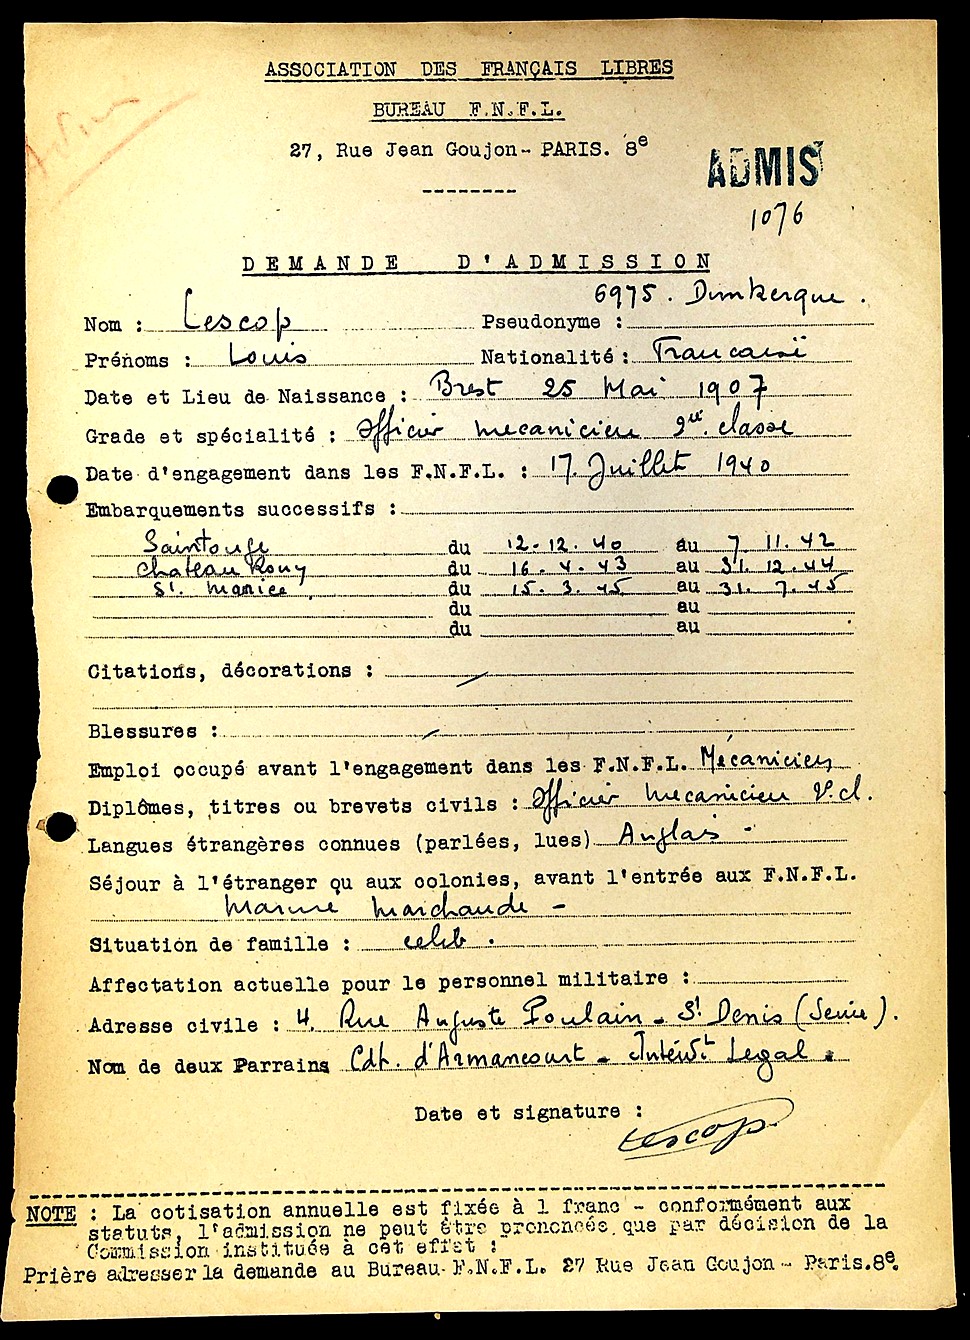 ASSOCIATION DES FRANÇAIS LIBRES
BUREAU F.N.F.L.
27, Rue Jean Goujon - PARIS. 8e
--------
ADMIS
1076
DEMANDE D'ADMISSION
6975. Dunkerque.
Nom : Lescop Pseudonyme :
Prénoms : Louis Nationalité : Francaise
Date et Lieu de Naissance : Brest 25 Mai 1907
Grade et spécialité : Officier mecanicien classe
Date d'engagement dans les F.N.F.L. : 17. Juillet 1940
Embarquements successifs :
Saintonge du 12-12.40 au 7.11.42
Chateau Rouy du 16.4.43 au 31.12.44
St. Marice du 15.3.45 au 31.7.45
du au
du au
Citations, décorations : /
Blessures : /
Emploi occupé avant l'engagement dans les F.N.F.L. Mécanicien
Diplômes, titres ou brevets civils : Officier mecanicien cl.
Langues étrangères connues (parlées, lues) Anglais -
Séjour à l'étranger ou aux colonies, avant l'entrée aux F.N.F.L.
Marine Marchande -
Situation de famille : celib.
Affectation actuelle pour le personnel militaire :
Adresse civile : 4. Rue Auguste Poulain - St Denis (Seine).
Nom de deux Parrains Cdt. d'Armancourt - Intendt Legal.
Date et signature :
Lescop.
NOTE : La cotisation annuelle est fixée à 1 franc - conformément aux
statuts, l'admission ne peut être prononcée que par décision de la
Commission instituée à cet effet :
Prière adresser la demande au Bureau F.N.F.L. 27 Rue Jean Goujon - Paris.8e.